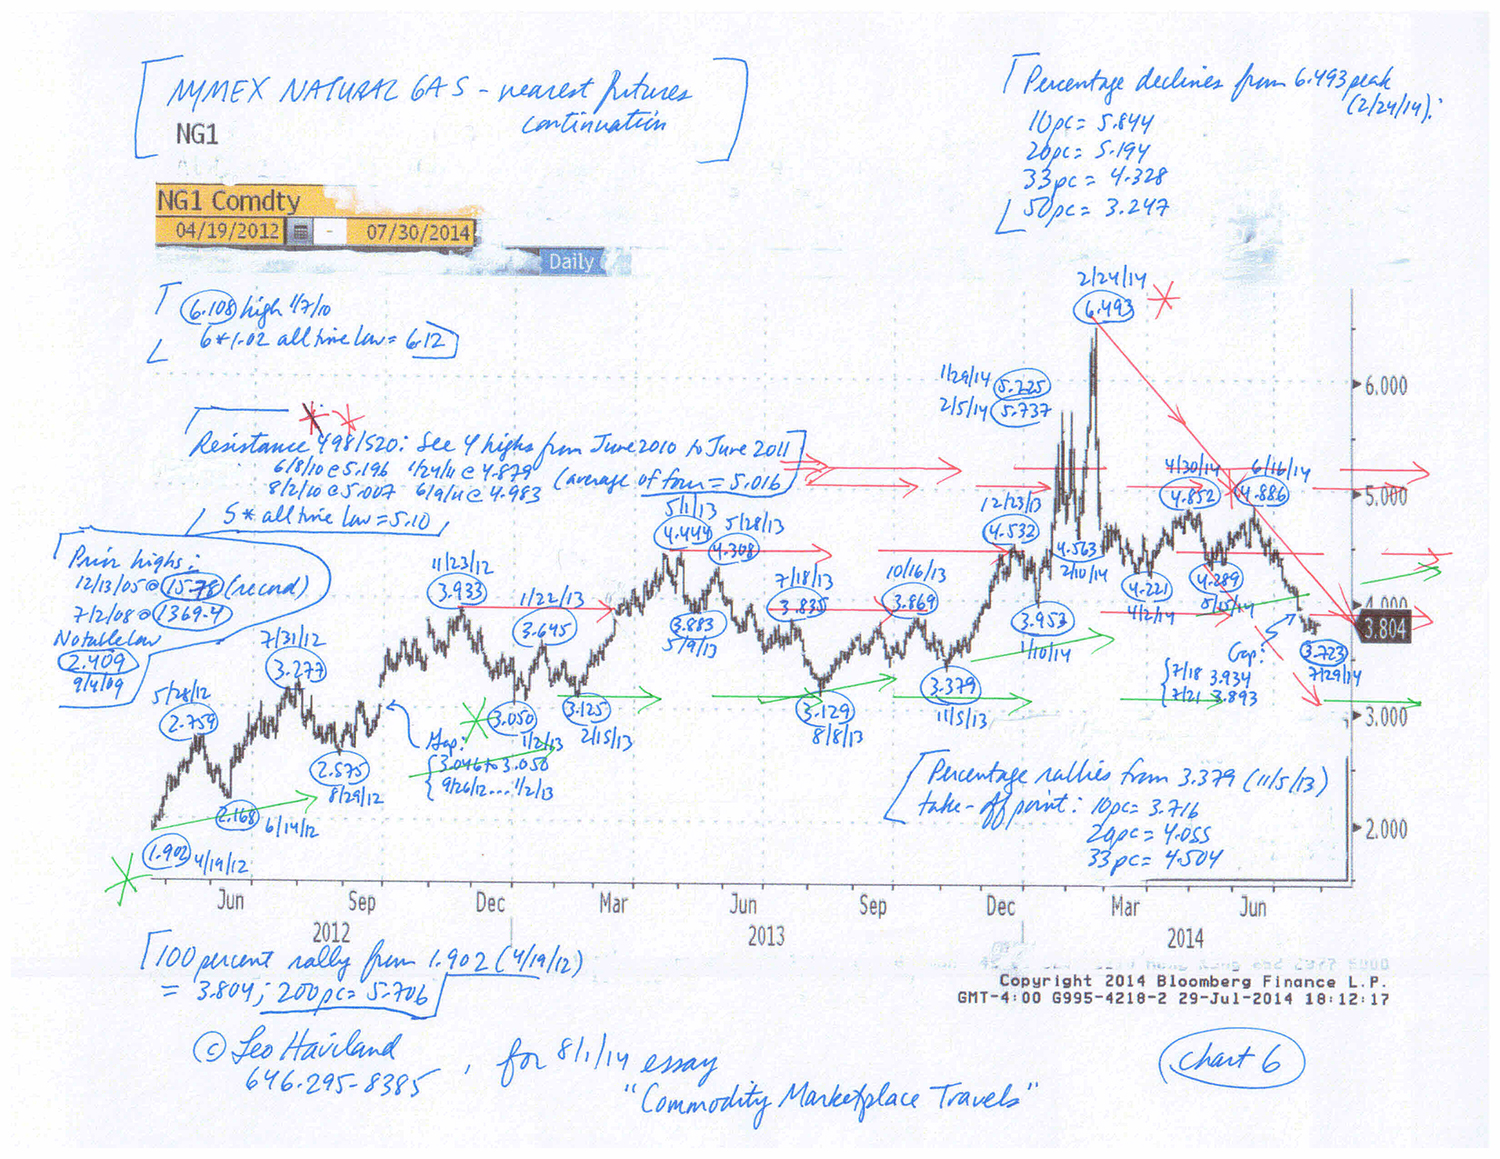 NYMEX NATURAL GAS - nearest futures
continuation
NG1
NG1 Comdty
04/19/2012 - 07/30/2014
Daily
Percentage declines from 6.493 peak
(2/24/14):
10pc = 5.844
20pc = 5.194
33pc = 4.328
50pc = 3.247
6.108 high 1/7/10
6*1.02 all time low = 6.12
Resistance 498/520: See 4 highs from June 2010 to June 2011
6/8/10 @ 5.196 1/24/11 @ 4.879
8/2/10 @ 5.007 6/9/11 @ 4.983
(average of four = 5.016)
5* all time low = 5.10
Prior highs:
12/13/05 @ 15.78 (record)
7/2/08 @ 1369.4
Notable low
2.409
9/4/09
5/28/12
2.759
7/31/12
3.277
11/23/12
3.933
1/22/13
3.645
5/1/13
4.444
5/28/13
4.308
3.883
5/9/13
7/18/13
3.835
10/16/13
3.869
12/23/13
4.532
1/29/14 5.225
2/5/14 5.737
2/24/14
6.493
4.563
2/10/14
3.953
1/10/14
4/30/14
4.852
6/16/14
4.886
4.221
4/2/14
4.289
5/15/14
Gap:
7/18 3.934
7/21 3.893
3.723
7/29/14
1.902 4/19/12
2.168 6/14/12
2.575
8/29/12
Gap:
3.046 to 3.050
9/26/12....1/2/13
3.050
1/2/13
3.125
2/15/13
3.129
8/8/13
3.379
11/5/13
Percentage rallies from 3.379 (11/5/13)
take-off point: 10pc = 3.716
20pc = 4.055
33pc = 4.504
6.000
5.000
4.000
3.804
3.000
2.000
Jun Sep Dec Mar Jun Sep Dec Mar Jun
2012 2013 2014
100 percent rally from 1.902 (4/19/12)
= 3.804; 200pc = 5.706
Copyright 2014 Bloomberg Finance L.P.
GMT-4:00 G995-4218-2 29-Jul-2014 18:12:17
© Leo Haviland
646.295-8385
, for 8/1/14 essay
"Commodity Marketplace Travels"
Chart 6